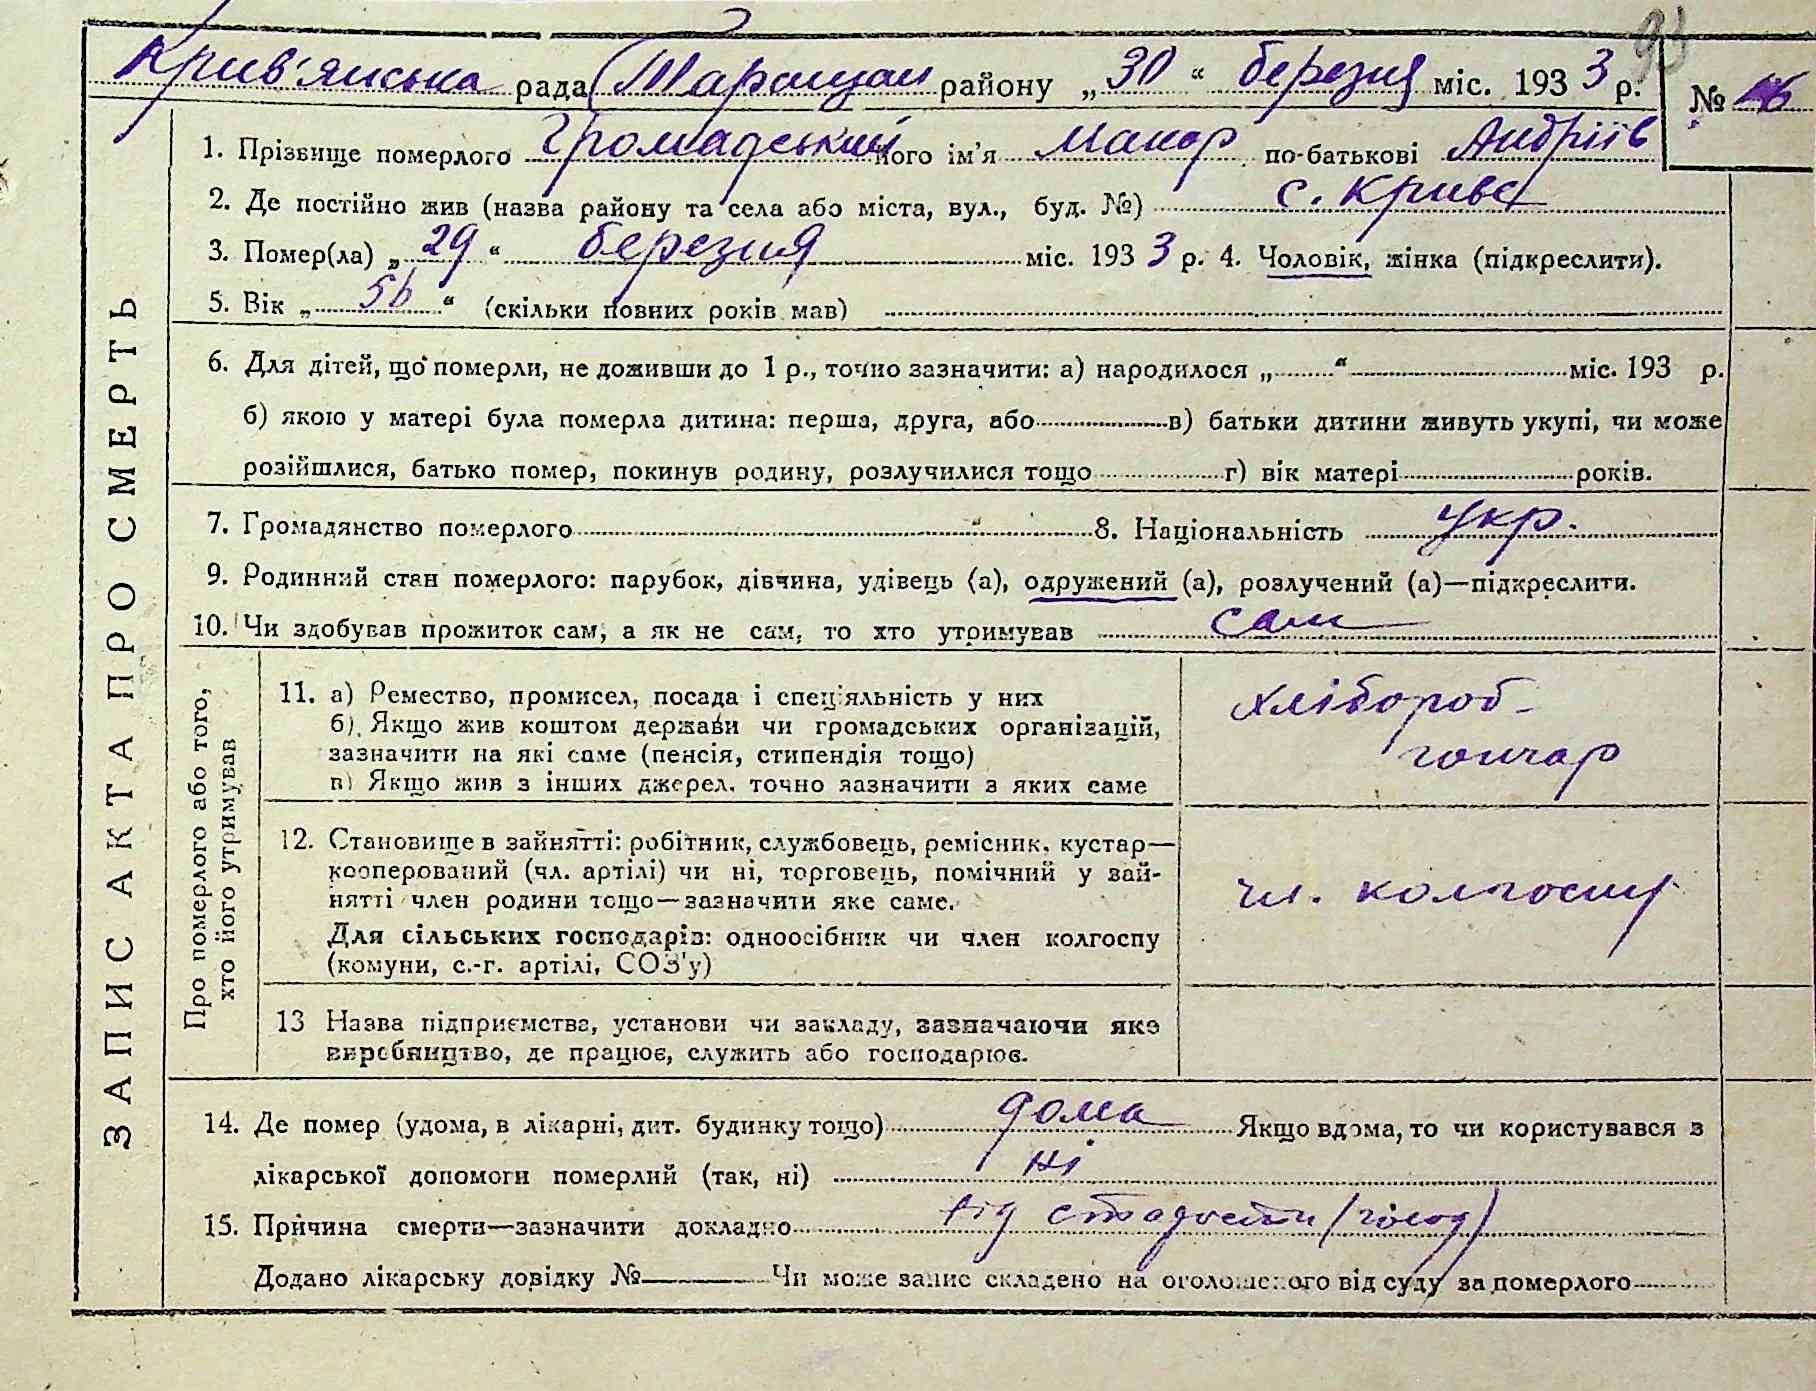 93
Крив'янська рада (Таращан району „30“ березня міс. 1933 р. №
1. Прізвище померлого Громадський його ім'я Макар по-батькові Андріїв
2. Де постійно жив (назва району та села або міста, вул., буд. №) с. Криве
3. Помер(ла) „29“ березня міс. 1933 р. 4. Чоловік, жінка (підкреслити).
5. Вік „56“ (скільки повних років мав)
6. Для дітей, що померли, не доживши до 1 р., точно зазначити: а) народилося „ “ міс. 193 р.
б) якою у матері була померла дитина: перша, друга, або в) батьки дитини живуть укупі, чи може
розійшлися, батько помер, покинув родину, розлучилися тощо г) вік матері років.
7. Громадянство померлого 8. Національність укр.
9. Родинний стан померлого: парубок, дівчина, удівець (а), одружений (а), розлучений (а)—підкреслити.
10. Чи здобував прожиток сам, а як не сам, то хто утримував сам
ЗАПИС АКТА ПРО СМЕРТЬ
Про померлого або того,
хто його утримував
11. а) Ремество, промисел, посада і спеціяльність у них
б) Якщо жив коштом держави чи громадських організацій,
зазначити на які саме (пенсія, стипендія тощо)
в) Якщо жив з інших джерел, точно зазначити з яких саме
хлібороб-
гончар
12. Становище в зайнятті: робітник, службовець, ремісник, кустар—
кооперований (чл. артілі) чи ні, торговець, помічний у зай-
нятті член родини тощо—зазначити яке саме.
Для сільських господарів: одноосібник чи член колгоспу
(комуни, с.-г. артілі, СОЗ'у)
чл. колгоспу
13 Назва підприємства, установи чи закладу, зазначаючи яке
виробництво, де працює, служить або господарює.
14. Де помер (удома, в лікарні, дит. будинку тощо) дома Якщо вдома, то чи користувався з
лікарської допомоги померлий (так, ні) ні
15. Причина смерти—зазначити докладно від старости (голод)
Додано лікарську довідку № Чи може запис складено на оголошеного від суду за померлого